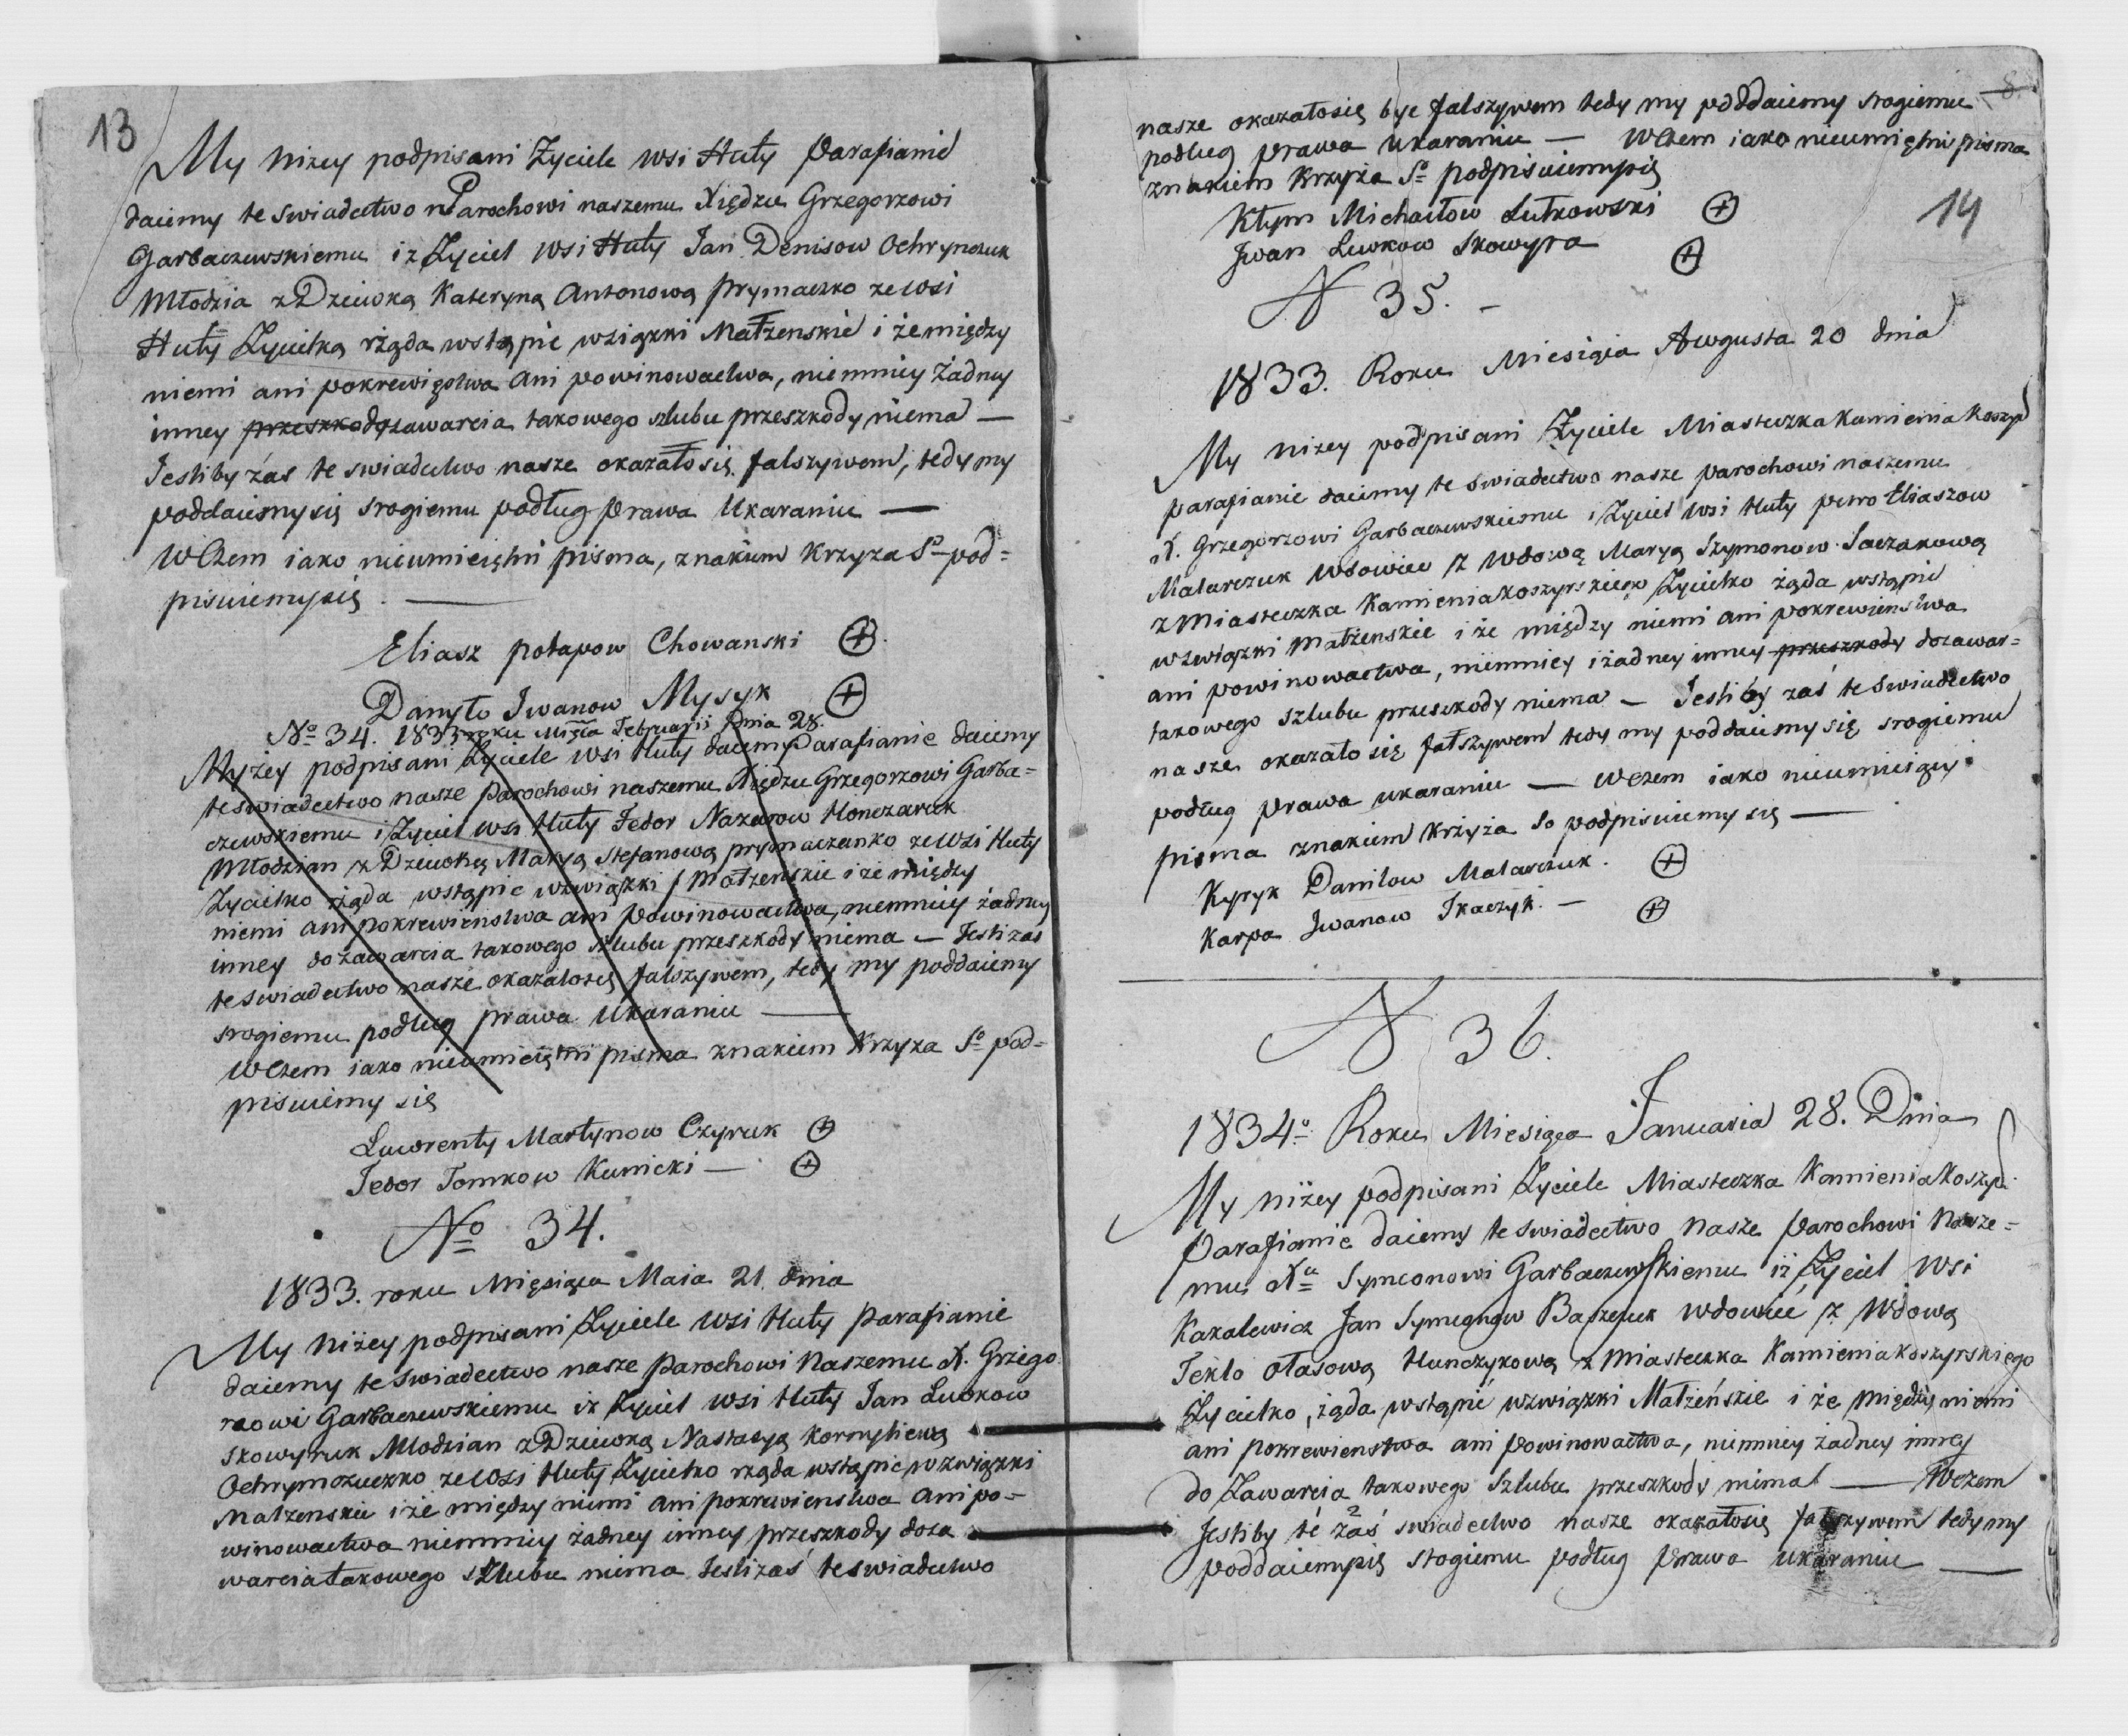 13
My niżey podpisani Życiele wsi Huty Parafianie
daiemy te swiadectwo Parochowi naszemu Xiędzu Grzegorzowi
Garbaczewskiemu iz Życiel wsi Huty Jan Denisow Ochrymczuk
Młodzia z Dziewką Kateryną Antonową Prymaczko ze wsi
Huty Życielką rżąda wstąpic wziąski Małżenskie i że między
niemi ani pokrewięstwa ani powinowactwa, niemniey żadney
inney przeszkody zawarcia takowego szlubu przeszkody niema —
Jesliby zas te swiadectwo nasze okazałosię falszywem, tedy my
poddaiemysię srogiemu podług Prawa Ukaraniu —
W Czem iako nieumieiętni pisma, znakiem Krzyża So pod=
pisuiemysię. —
Eliasz potapow Chowanski +
Danyło Iwanow Mysyk +
No 34. 1833 roku Mięsca Februarii Dnia 28.
My żey podpisani Życiele wsi Huty daiemy Parafianie daiemy
te swiadectwo nasze Parochowi naszemu Xiędzu Grzegorzowi Garba=
czewskiemu i Życiel wsi Huty Fedor Nazarow Honczaruk
Młodzian z Dziewką Maryą Stefanową prymaczanko ze wsi Huty
Życielko rżąda wstąpic wzwiąski Małzenskie i że między
niemi ani pokrewienstwa ani Powinowactwa, niemniey żadney
inney do zawarcia takowego szlubu przeszkody niema — Jesli zas
te swiadectwo nasze okazałosię falszywem, tedy my poddaiemy
srogiemu podług prawa Ukaraniu —
W Czem iako nieumieiętni pisma znakiem Krzyża So pod=
pisuiemy się
Ławrenty Martynow Czyruk +
Fedor Tomkow Kunicki — +
No 34.
1833. roku Mięsiąca Maia 21. dnia
My niżey podpisani Życiele wsi Huty Parafianie
daiemy te swiadectwo nasze Parochowi Naszemu X. Grzego
rzowi Garbaczewskiemu iż Życiel wsi Huty Jan Lwokow
Skowyruk Młodzian z Dziewką Nastasyą Kornyliewą
Ochrymczuczko ze wsi Huty Życielko rżąda wstąpic wzwiąski
Małzenskie i że między niemi ani pokrewienstwa ani po=
winowactwa niemniey żadney inney przeszkody doza
warcia takowego szlubu niema Jesli zaś te swiadectwo
8.
nasze okazałosię byc falszywem tedy my podddaiemy srogiemu
podług Prawa Ukaraniu — W Czem iako nieumieętni pisma
znakiem Krzyża So podpisuiemysię
14
Kłym Michałow Lutkowski +
Iwan Lwokow Skowyra +
N 35. -
1833. Roku Miesiąca Awgusta 20 dnia
My niżey podpisani Życiele Miasteczka Kamienia Koszyr
parafianie daiemy te swiadectwo nasze parochowi naszemu
X. Grzegorzowi Garbaczewskiemu i Życiel wsi Huty Petro Eliaszow
Malarczuk Wdowiec z Wdową Maryą Szymonow Saczakową
z Miasteczka Kamieniakoszyrskiego Życielko żąda wstąpić
wzwiąski Małżenskie i że między niemi ani pokrewieństwa
ani powinowactwa, niemniey i żadney inney przeszkody dozawar=
takowego szlubu przeszkody niema — Jesliby zaś te swiadectwo
nasze okazało się fałszywem tedy my poddaiemy się srogiemu
podług Prawa ukaraniu — W czem iako nieumieięni
pisma znakiem krzyża So podpisuiemy się —
Kyryk Danilow Malarczuk. +
Karpa Iwanow Tkaczyk. — +
N 36.
1834o Roku Miesiąca Januaria 28. Dnia
My niżey podpisani Życiele Miasteczka Kamienia Koszyr
Parafianie daiemy te swiadectwo Nasze Parochowi Nasze=
mu Xu Symeonowi Garbaczewskiemu iż Życiel wsi
Karalewicz Jan Symeonow Baszejuk Wdowiec z Wdową
Teklo Ołasową Hunczykową z Miasteczka Kamieniakoszyrskiego
Życielko, żąda wstąpić wzwiąski Małżeńskie i że między niemi
ani pokrewienstwa ani Powinowactwa, niemniey żadney inney
do Zawarcia takowego Szlubu przeszkody niema — Wczem
Jesliby té zaś swiadectwo nasze okazałosię fałszywem tedy my
poddaiemysię srogiemu podług Prawa ukaraniu —